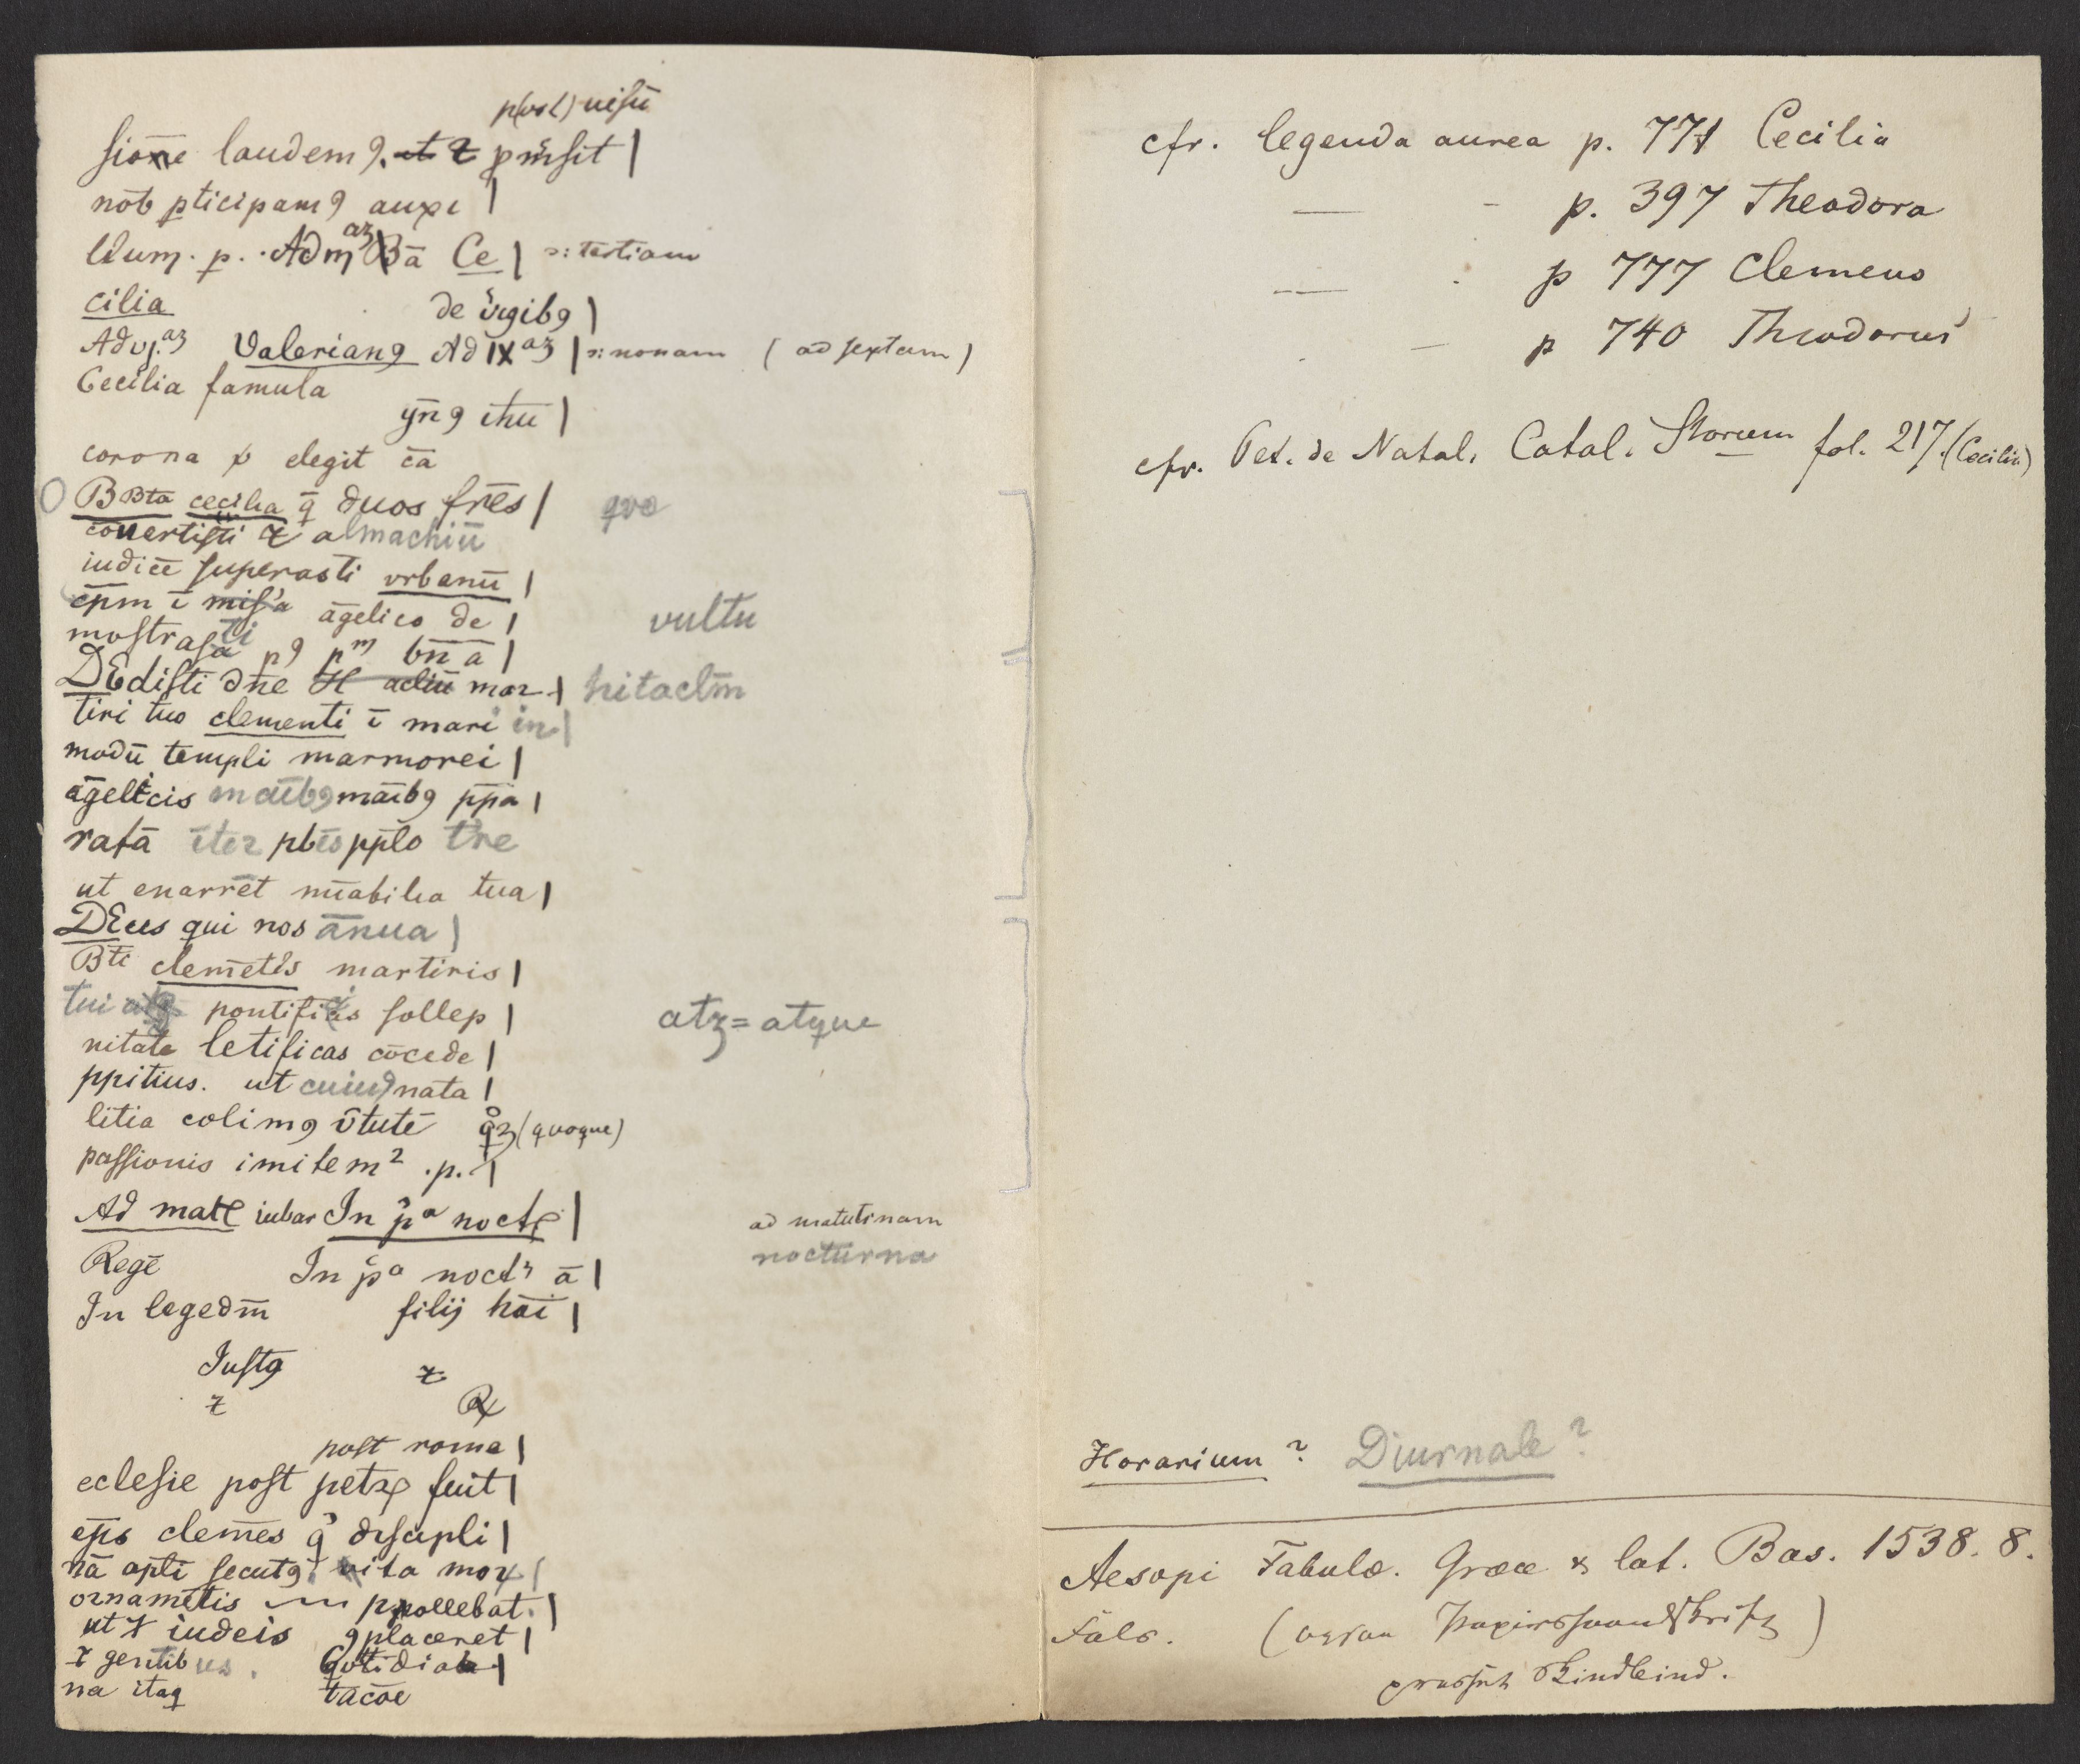 p(ost) uisū
sione laudem9. et ⁊ pmsit |
nob pticipam9 auxi |
lium. p. Ad m az Bā Ce | ɔ: tertiam
cilia de ûgib9 |
Ad vj. az Valerian9 Ad IX az | ɔ: nonam (ad sextam)
Cecilia famula
ym9 ihu |
corona elegit cā
O Bta cecilia q̄ duos fr̄es | quo
couertisti ⁊ almachiū
iudicē superasti vrbanū |
ep̄m ī agelico de | vultu
mostrasti p9 pm bn̄ ā |
DEdisti dn̄e mar | hitaclm
tiri tuo clementi ī mari in |
modū templi marmorei |
āgelicis māib9 ppa |
ratā īter pleō pplo tre
ut enarrēt mīabilia tua |
DEus qui nos ānua |
Bti clemētis martiris |
tui pontificis sollep | atꝫ = atque
nitate letificas cōcede |
ppitius. ut cuiu9 nata |
litia colim9 v̄tutē qꝫ (quoque)
passionis imitem2 .p. |
Ad mat iubar In pa noct | ad matutinam
Regē In pa noct ā | nocturna
In legedm̄ filij hoī |
Just9 ⁊
⁊ ℟
post rome |
eclesie post petꝝ fuit |
ep̄s clemēs q disapli |
nā apli secut9 vita mox |
ornamētis ppollebat. |
ut ⁊ iudeis 9placeret |
⁊ gentibus. Qotidia |
na itaq tacōe
cfr. legenda aurea p. 771 Cecilia
— - p. 397 Theodora
— - p 777 Clemens
- — p 740 Theodorus
cfr. Pet. de Natal. Catal. Storum fol. 217. (Cecilia)
Horarium? Diurnale?
Aesopi Fabulæ. Græce & lat. Bas. 1538. 8.
Fals.